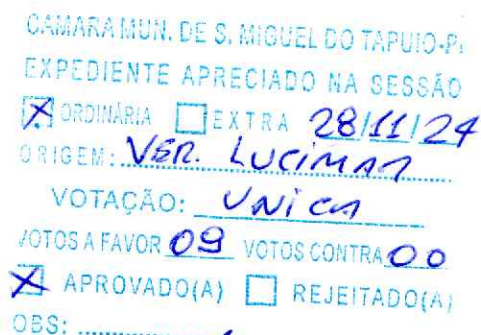 CAMARA MUN. DE S. MIGUEL DO TAPUIO-PI
EXPEDIENTE APRECIADO NA SESSÃO
☒ ORDINÁRIA ☐ EXTRA 28/11/24
ORIGEM: VER. LUCIMAR
VOTAÇÃO: UNICA
VOTOS A FAVOR 09 VOTOS CONTRA 00
☒ APROVADO(A) ☐ REJEITADO(A)
OBS: